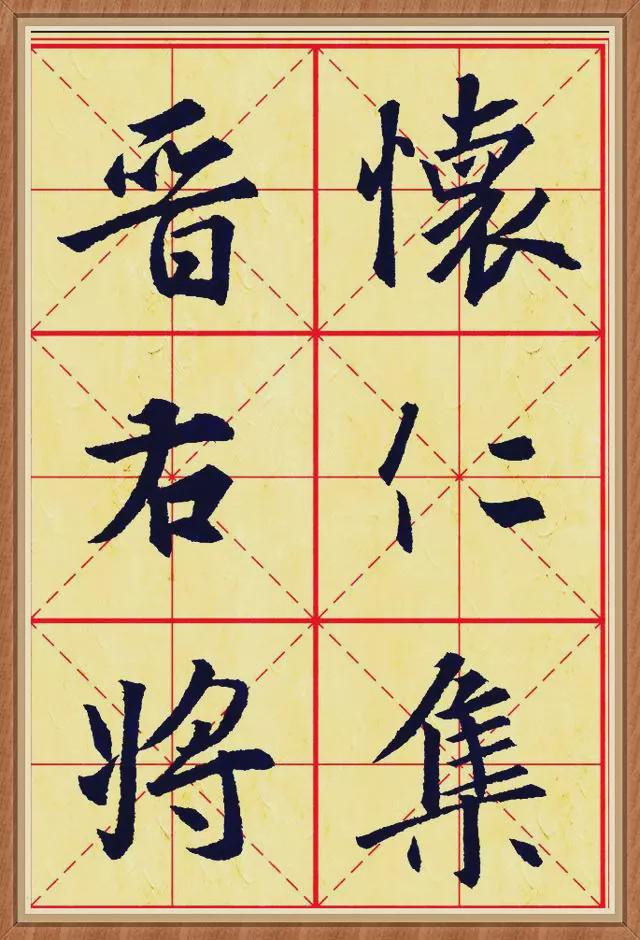 懷仁集
晉右將